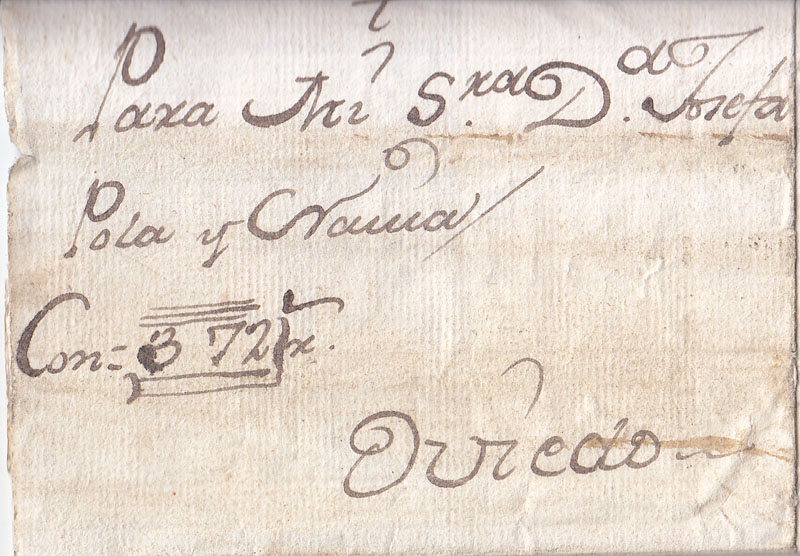 Para Mi S.ra D.a Josefa
Pola y Navia
Con= 372 r.
Oviedo